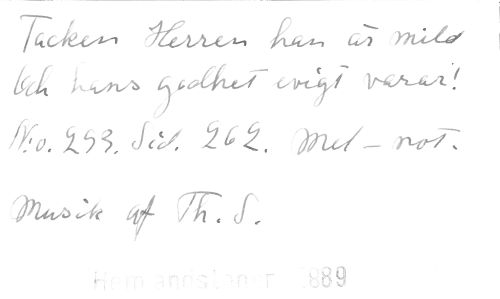 Tacken Herren han är mild
Och hans godhet evigt varar!
No. 293. Sid. 262. Mel-not.
Musik af Th. S.
Hemlandstoner 1889